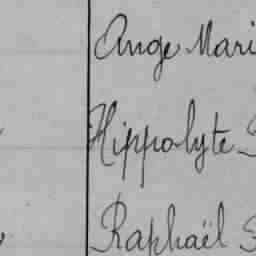 Ange Mari
Hippolyte
Raphaël